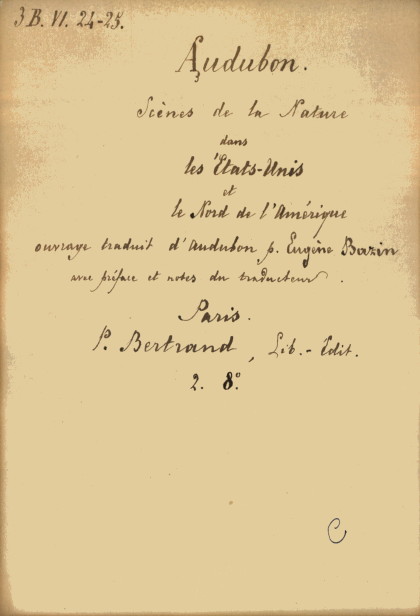 3 B. VI. 24-25.
Audubon.
Scènes de la Nature
dans
les États-Unis
et
le Nord de l'Amérique
ouvrage traduit d'Audubon p. Eugène Bazin
avec préface et notes du traducteur.
Paris.
P. Bertrand, Lib.-Edit.
2. 8°.
C